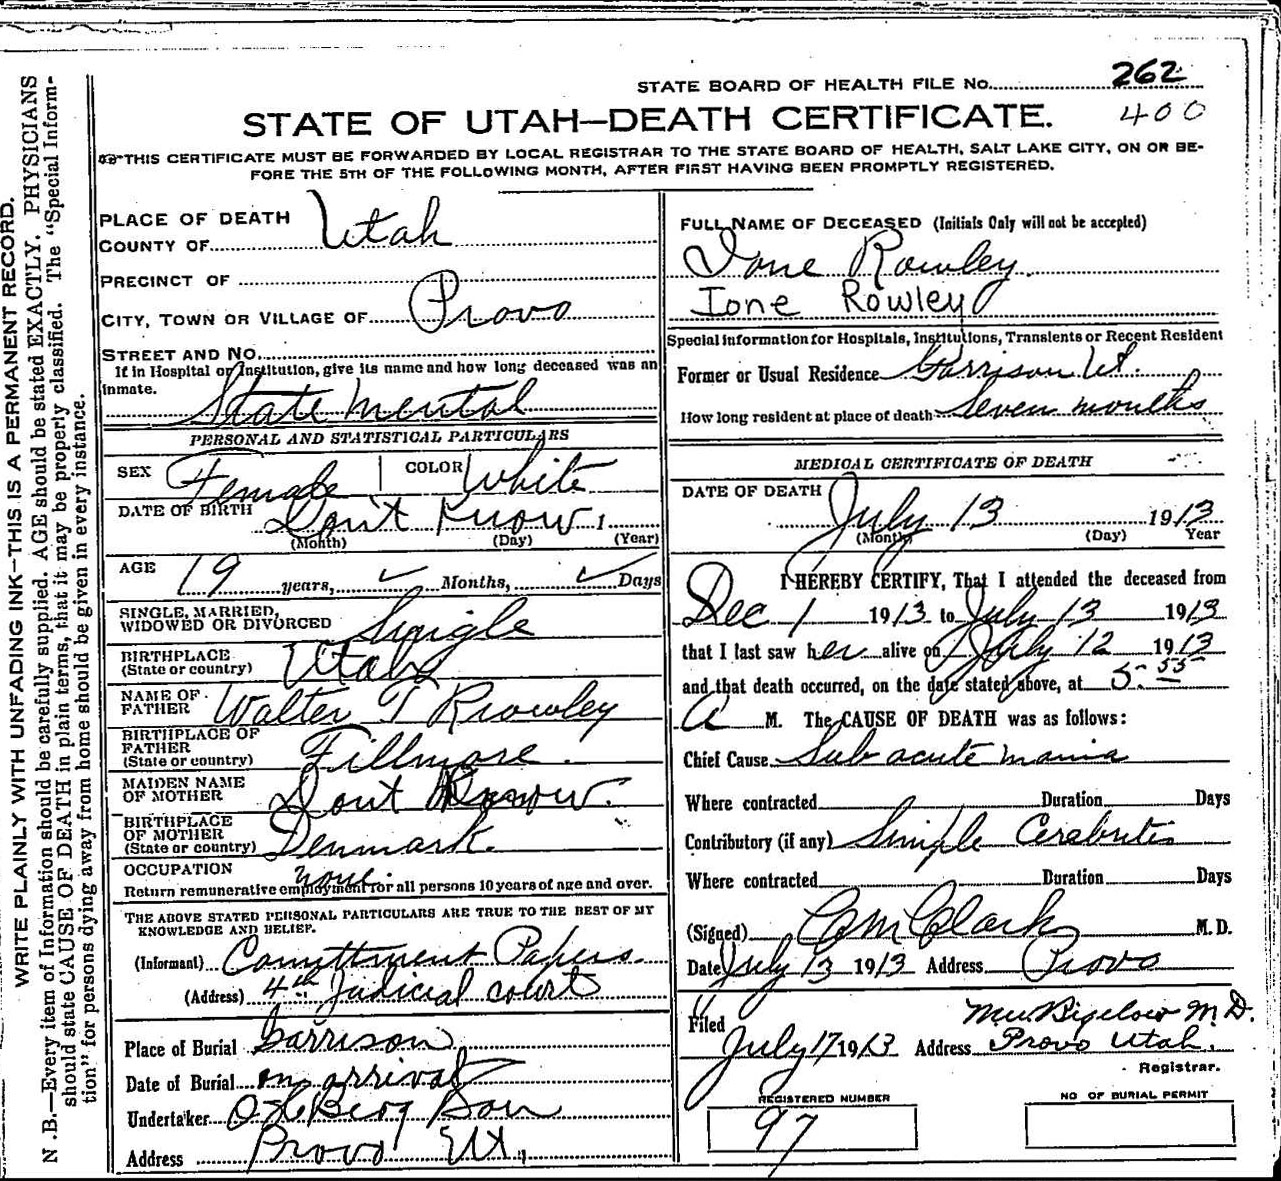 STATE BOARD OF HEALTH FILE No. 262
400
STATE OF UTAH—DEATH CERTIFICATE.
THIS CERTIFICATE MUST BE FORWARDED BY LOCAL REGISTRAR TO THE STATE BOARD OF HEALTH, SALT LAKE CITY, ON OR BE-
FORE THE 5TH OF THE FOLLOWING MONTH, AFTER FIRST HAVING BEEN PROMPTLY REGISTERED.
WRITE PLAINLY WITH UNFADING INK—THIS IS A PERMANENT RECORD.
N.B.—Every item of Information should be carefully supplied. AGE should be stated EXACTLY. PHYSICIANS
should state CAUSE OF DEATH in plain terms, that it may be properly classified. The "Special Inform-
tion" for persons dying away from home should be given in every instance.
PLACE OF DEATH
COUNTY OF Utah
PRECINCT OF
CITY, TOWN OR VILLAGE OF Provo
STREET AND NO.
If in Hospital or Institution, give its name and how long deceased was an
inmate.
State Mental
PERSONAL AND STATISTICAL PARTICULARS
SEX Female COLOR White
DATE OF BIRTH Don't Know 1
(Month) (Day) (Year)
AGE 19 years, ✓ Months, ✓ Days
SINGLE, MARRIED,
WIDOWED OR DIVORCED Single
BIRTHPLACE
(State or country) Utah
NAME OF
FATHER Walter T Rowley
BIRTHPLACE OF
FATHER
(State or country) Fillmore.
MAIDEN NAME
OF MOTHER Dont Know.
BIRTHPLACE
OF MOTHER
(State or country) Denmark.
OCCUPATION none.
Return remunerative employment for all persons 10 years of age and over.
THE ABOVE STATED PERSONAL PARTICULARS ARE TRUE TO THE BEST OF MY
KNOWLEDGE AND BELIEF.
(Informant) Comittment Papers.
(Address) 4th Judicial court
Place of Burial Garrison
Date of Burial on arrival
Undertaker O H Berg Son
Address Provo Ut.,
FULL NAME OF DECEASED (Initials Only will not be accepted)
Ione Rowley.
Ione Rowley
Special Information for Hospitals, Institutions, Transients or Recent Resident
Former or Usual Residence Garrison Ut.
How long resident at place of death Seven months
MEDICAL CERTIFICATE OF DEATH
DATE OF DEATH
July 13 1913
(Month) (Day) Year
I HEREBY CERTIFY, That I attended the deceased from
Dec 1 1913 to July 13 1913
that I last saw her alive on July 12 1913
and that death occurred, on the date stated above, at 5.55
A M. The CAUSE OF DEATH was as follows:
Chief Cause Sub acute mania
Where contracted Duration Days
Contributory (if any) Simple Cerebritis
Where contracted Duration Days
(Signed) Clark M.D.
Date July 13 1913 Address Provo
Filed
July 17 1913 Address
Bigelow M.D.
Provo Utah.
Registrar.
REGISTERED NUMBER
97
NO OF BURIAL PERMIT